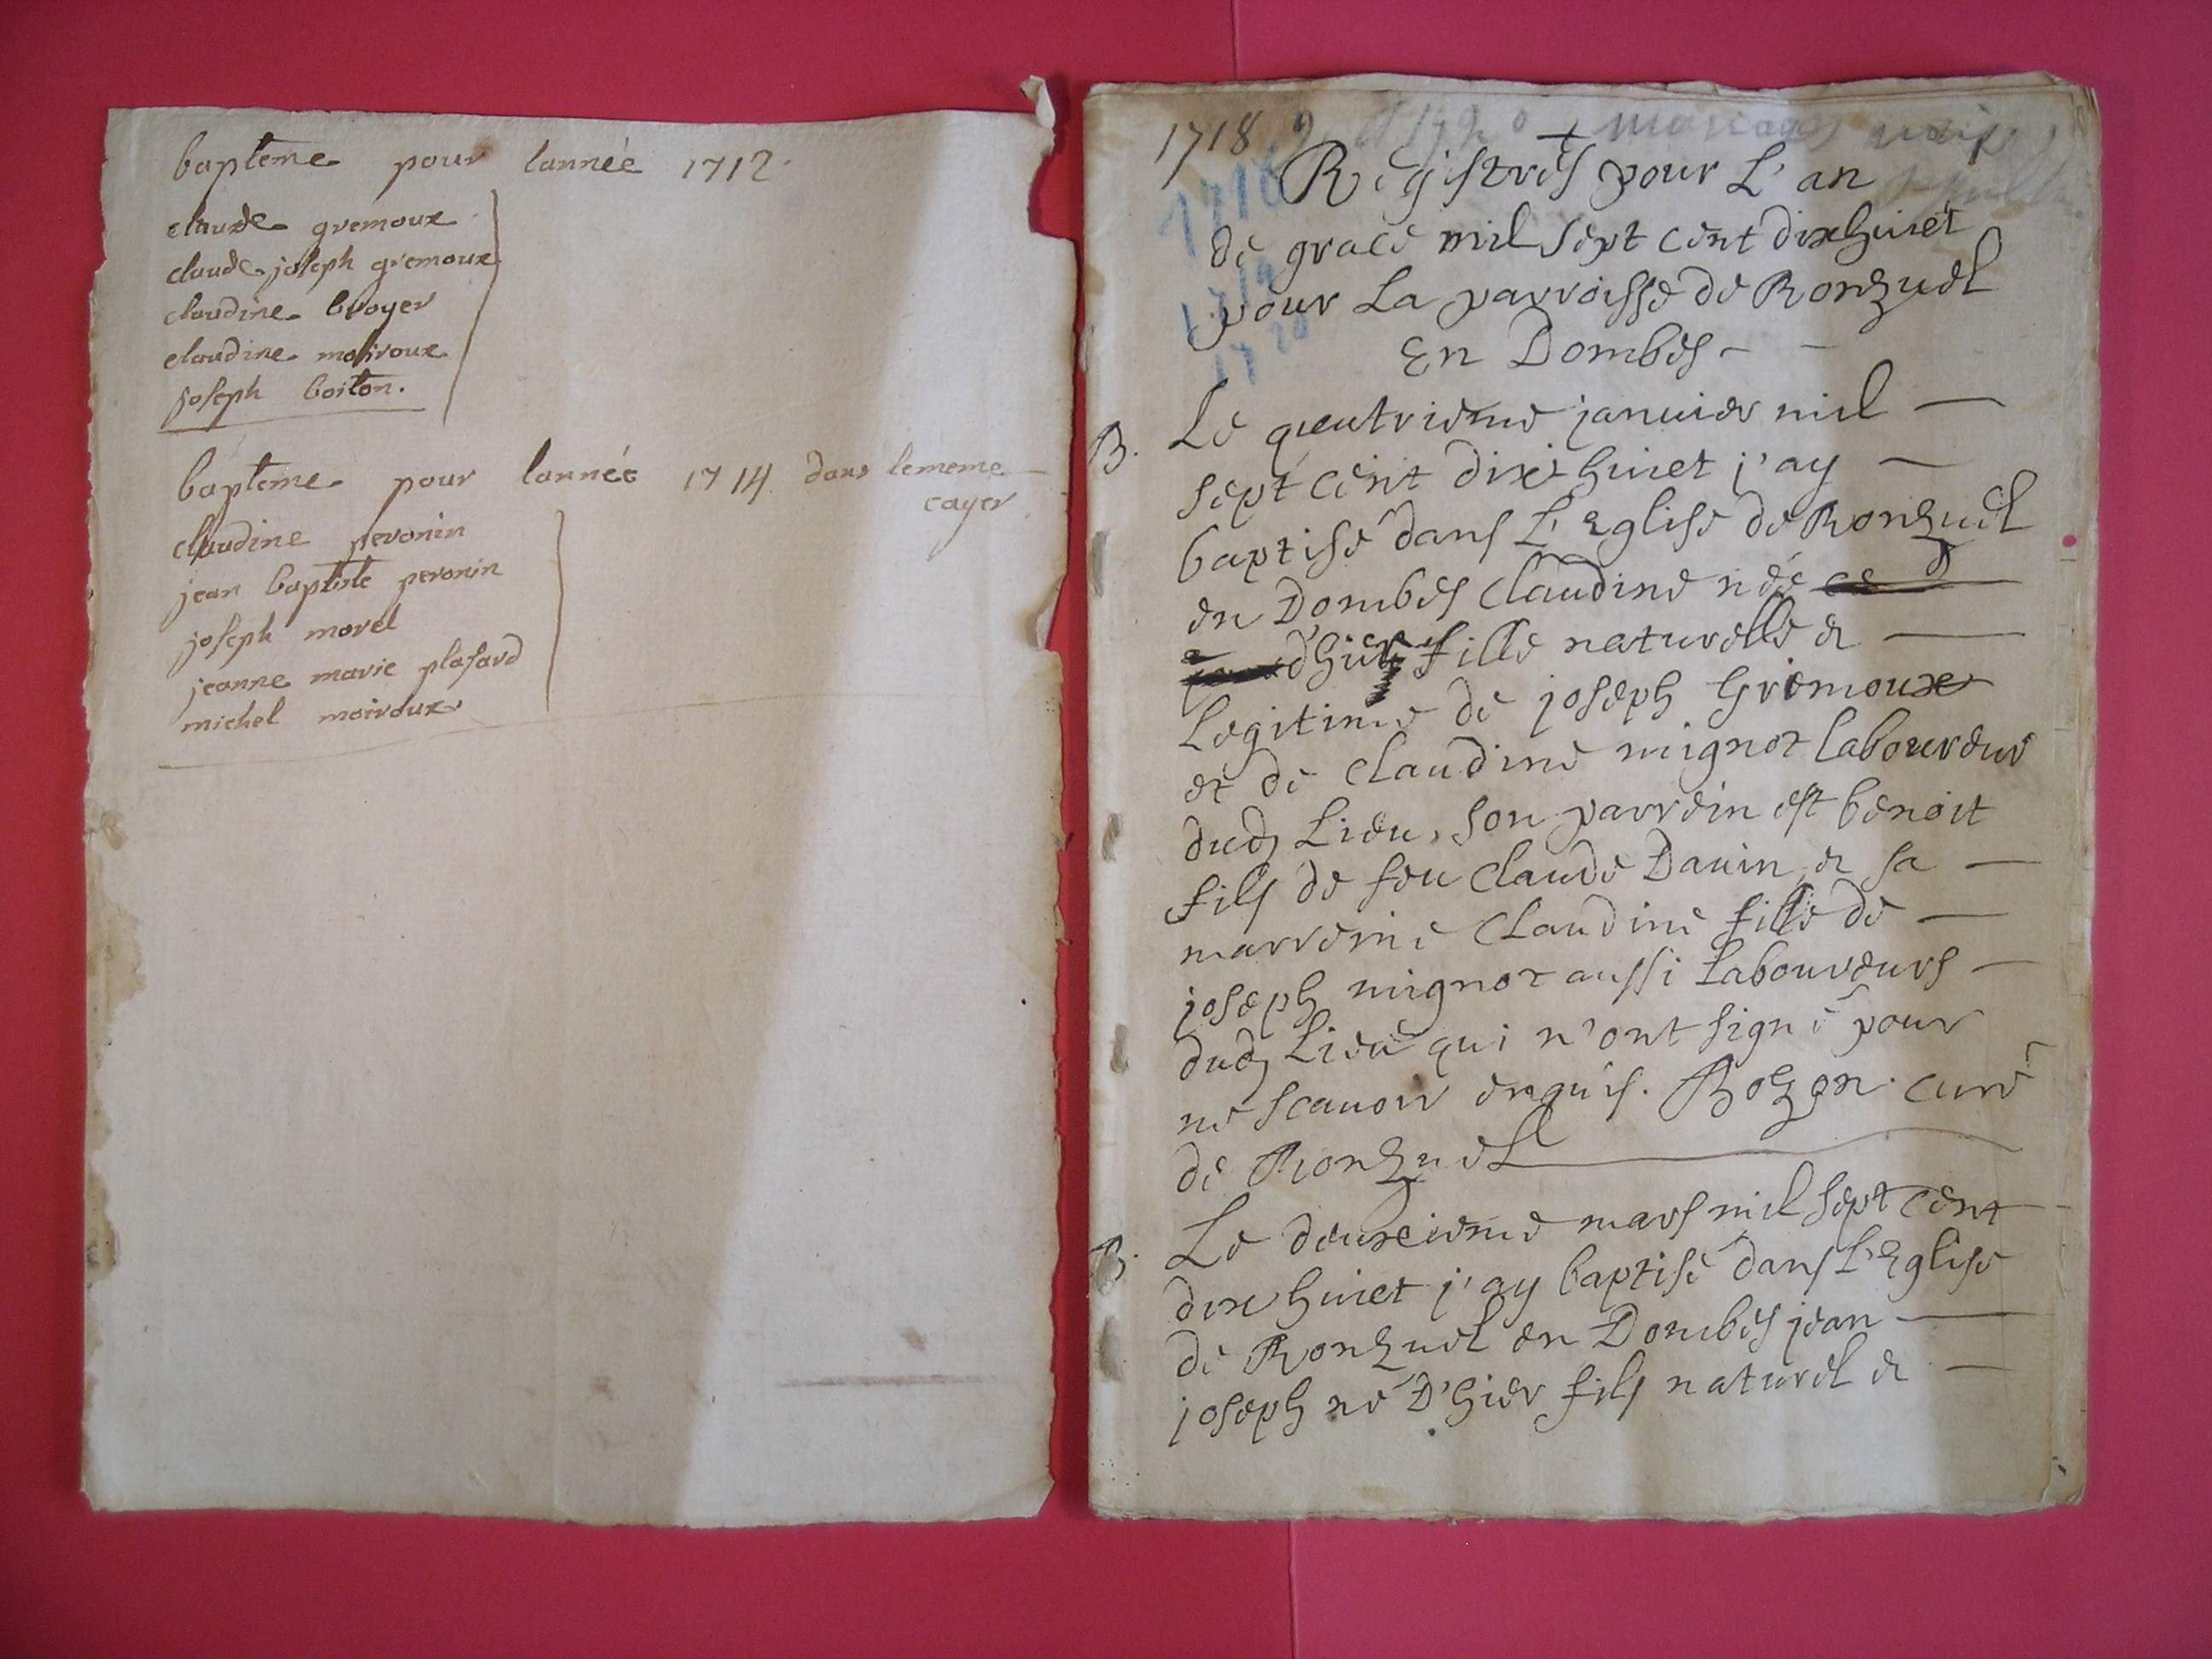 bapteme pour lannée 1712.
claude gremoux
claude joseph gremoux
claudine broyer
claudine moiroux
joseph boiton.
bapteme pour lannée 1714 dans lememe
cayer
claudine peronin
jean baptiste peronin
joseph morel
jeanne marie plasard
michel moiroux
1718
Registres pour L'an
de grace mil sept cent dixhuict
pour La parroisse de Ronzuel
En Dombes
B. Le quatrieme januier mil
sept cent dixhuict j'ay
baptisé dans L'Eglise de Ronzuel
en Dombes Claudine née
d'hier fille naturelle &
Legitime de joseph Gremoux
et de Claudine mignot laboureur
dud Lieu, son parrein est benoit
fils de feu Claude Dauin & sa
marreine Claudine fille de
joseph mignot aussi Laboureurs
dud Lieu qui n'ont signé pour
ne scauoir enquis. Bozon curé
de Ronzuel
B. Le deuxieme mars mil sept cent
dix huict j'ay baptisé dans L'Eglise
de Ronzuel en Dombes jean
joseph né D'hier fils naturel &